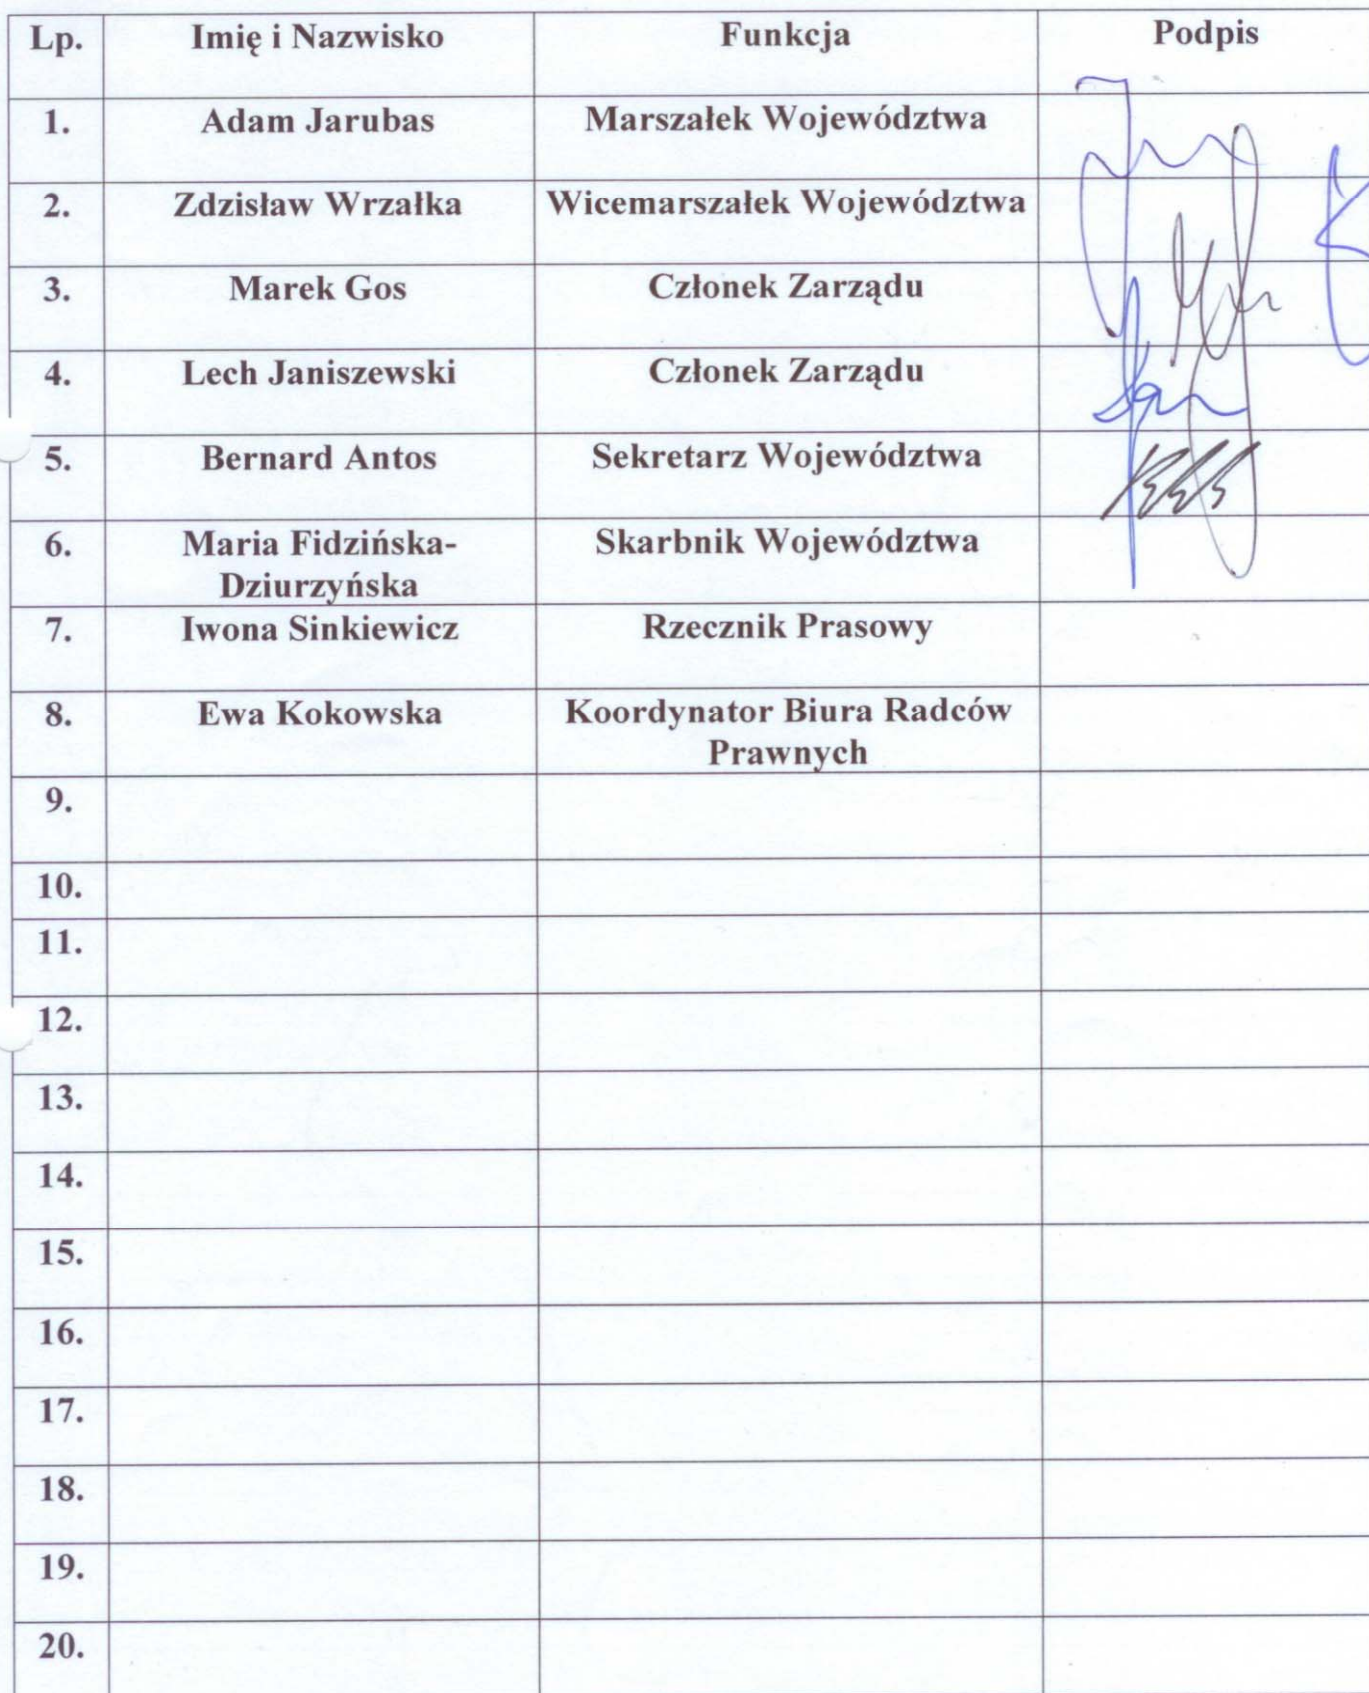 Lp. Imię i Nazwisko Funkcja Podpis
1. Adam Jarubas Marszałek Województwa
2. Zdzisław Wrzałka Wicemarszałek Województwa
3. Marek Gos Członek Zarządu
4. Lech Janiszewski Członek Zarządu
5. Bernard Antos Sekretarz Województwa
6. Maria Fidzińska- Skarbnik Województwa
Dziurzyńska
7. Iwona Sinkiewicz Rzecznik Prasowy
8. Ewa Kokowska Koordynator Biura Radców
Prawnych
9.
10.
11.
12.
13.
14.
15.
16.
17.
18.
19.
20.